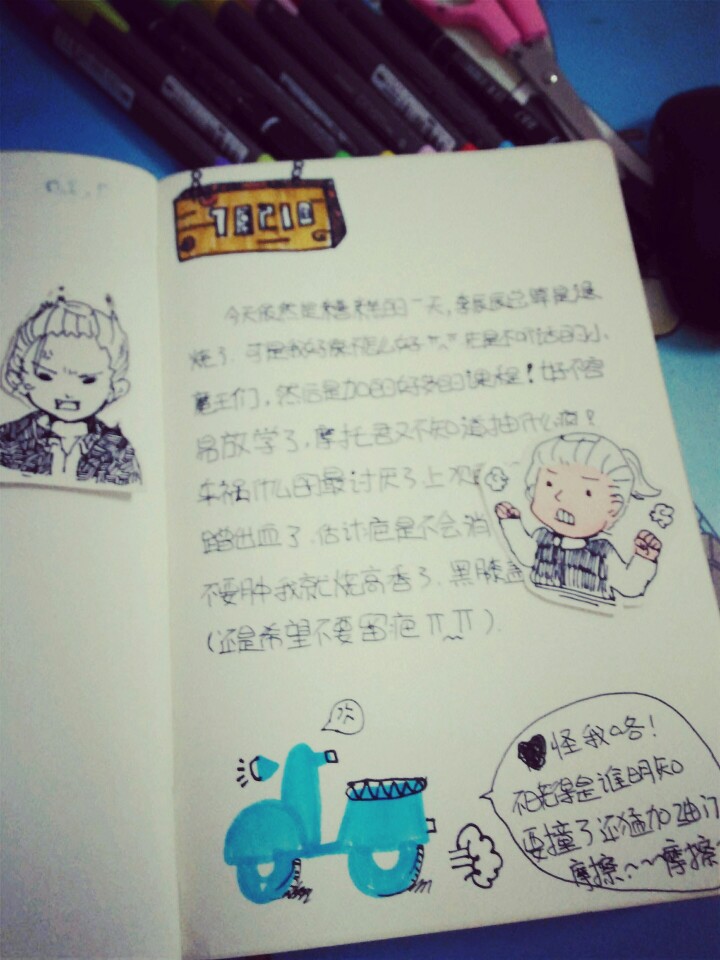 今天依然是糟糕的一天,
烧了. 可是我好像怎么好 还是不听话的小
魔王们, 然后是加的好多的课程! 好不容
易放学了, 摩托君又不知道抽什么疯?
车祸什么的最讨厌了上次
踏出血了. 估计疤是不会消
不要肿我就烧高香了. 黑膝盖
(还是希望不要留疤 π_π).
次
怪我咯!
不晓得是谁明知
要撞了还猛加油门
摩擦~~~摩擦~